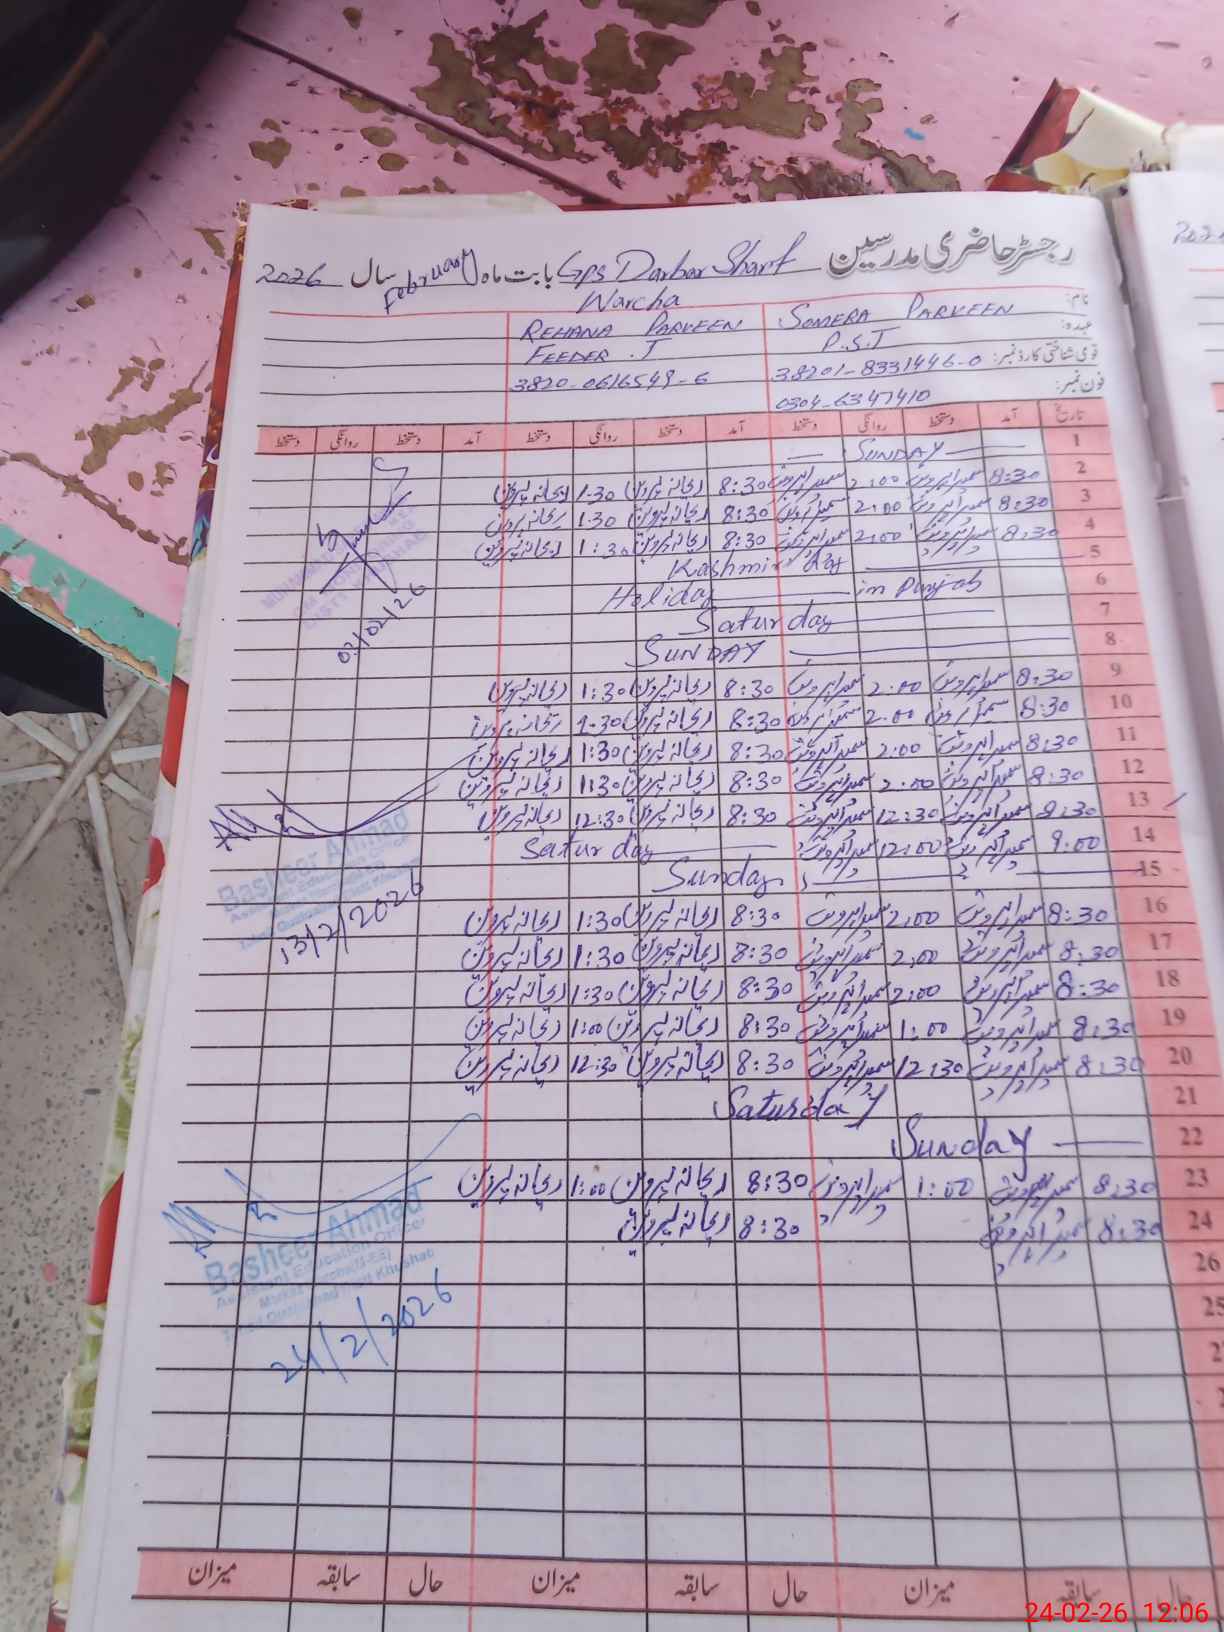 رجسٹر حاضری مدرسین Gps Darbar Sharf Warcha بابت ماہ February سال 2026
نام: SOMERA PARVEEN REHANA PARVEEN
عہدہ: P.S.T FEEDER.T
قومی شناختی کارڈ نمبر: 38201-8331446-0 3820-0616549-6
فون نمبر: 0304-6347410
تاریخ آمد دستخط روانگی دستخط آمد دستخط روانگی دستخط آمد دستخط روانگی دستخط
1 SUNDAY
2 8:30 سمیرا پروین 2:00 سمیرا پروین 8:30 ریحانہ پروین 1:30 ریحانہ پروین
3 8:30 سمیرا پروین 2:00 سمیرا پروین 8:30 ریحانہ پروین 1:30 ریحانہ پروین
4 8:30 سمیرا پروین 2:00 سمیرا پروین 8:30 ریحانہ پروین 1:30 ریحانہ پروین
5 Kashmir day
6 Holiday in Punjab
7 Saturday
8 SUNDAY
02/02/26
9 8:30 سمیرا پروین 2:00 سمیرا پروین 8:30 ریحانہ پروین 1:30 ریحانہ پروین
10 8:30 سمیرا پروین 2:00 سمیرا پروین 8:30 ریحانہ پروین 1:30 ریحانہ پروین
11 8:30 سمیرا پروین 2:00 سمیرا پروین 8:30 ریحانہ پروین 1:30 ریحانہ پروین
12 8:30 سمیرا پروین 2:00 سمیرا پروین 8:30 ریحانہ پروین 1:30 ریحانہ پروین
13 8:30 سمیرا پروین 12:30 سمیرا پروین 8:30 ریحانہ پروین 12:30 ریحانہ پروین
14 9:00 سمیرا پروین 12:00 سمیرا پروین Saturday
15 Sunday
Basheer Ahmad
13/2/2026
16 8:30 سمیرا پروین 2:00 سمیرا پروین 8:30 ریحانہ پروین 1:30 ریحانہ پروین
17 8:30 سمیرا پروین 2:00 سمیرا پروین 8:30 ریحانہ پروین 1:30 ریحانہ پروین
18 8:30 سمیرا پروین 2:00 سمیرا پروین 8:30 ریحانہ پروین 1:30 ریحانہ پروین
19 8:30 سمیرا پروین 1:00 سمیرا پروین 8:30 ریحانہ پروین 1:00 ریحانہ پروین
20 8:30 سمیرا پروین 12:30 سمیرا پروین 8:30 ریحانہ پروین 12:30 ریحانہ پروین
21 Saturday
22 Sunday
23 8:30 سمیرا پروین 1:00 سمیرا پروین 8:30 ریحانہ پروین 1:00 ریحانہ پروین
24 8:30 سمیرا پروین 8:30 ریحانہ پروین
Basheer Ahmad
Assistant Education Officer
24/2/2026
26
25
حال سابقہ میزان حال سابقہ میزان حال سابقہ میزان
24-02-26 12:06